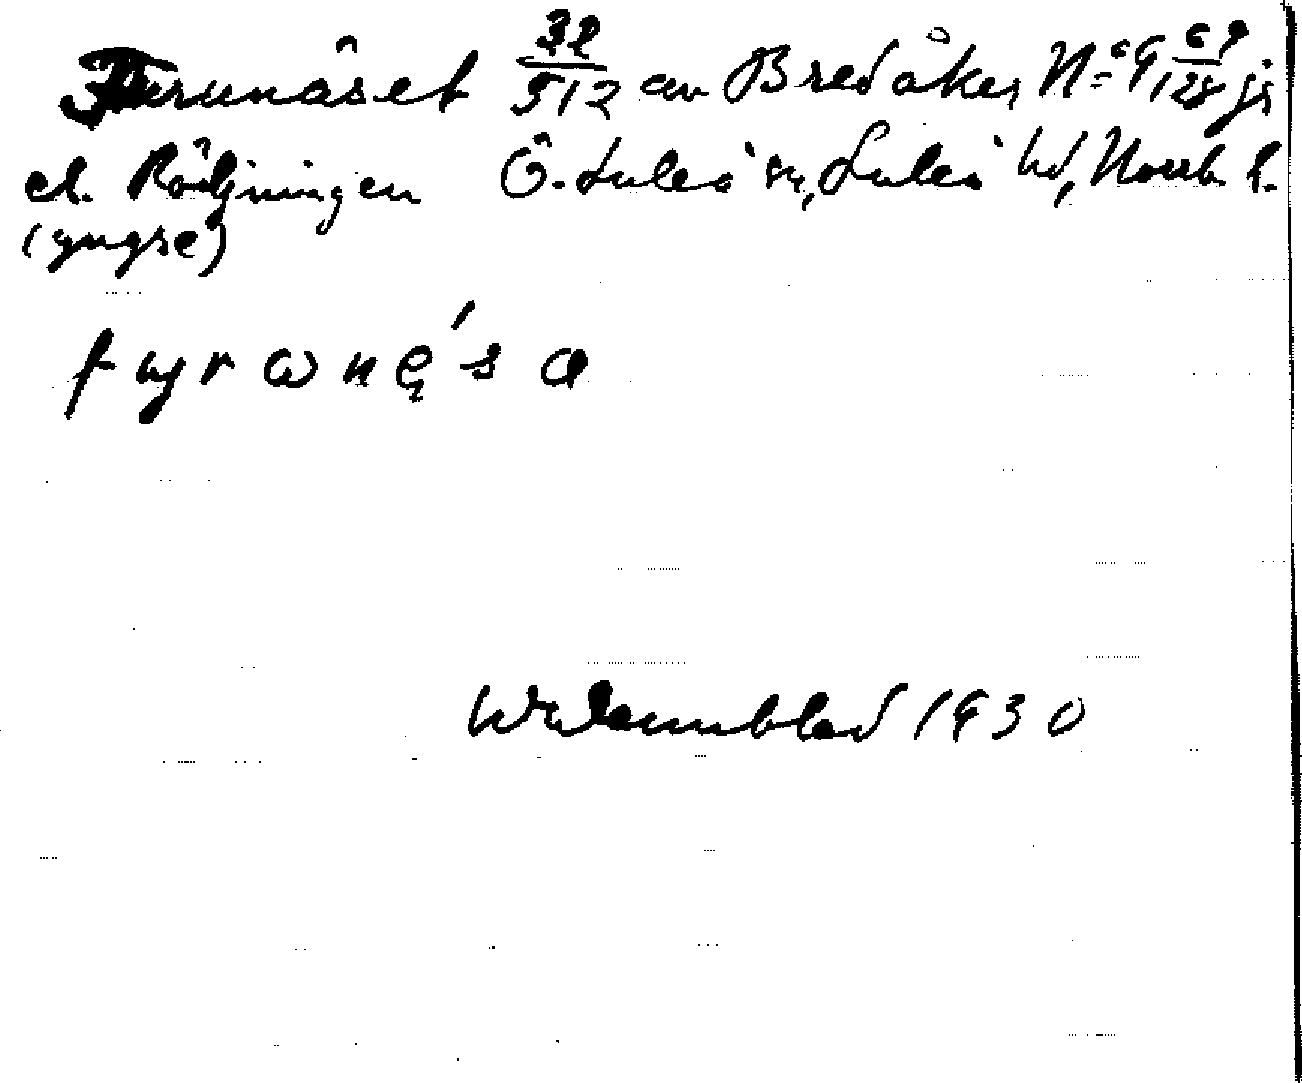 Furunäset 32/512 av Bredåker, N:o 9 69/128 js
el. Rödjningen Ö. Luleå sn, Luleå hd, Norrb. l.
(yngre)
fyrωnę́sa
Walennblad 1930